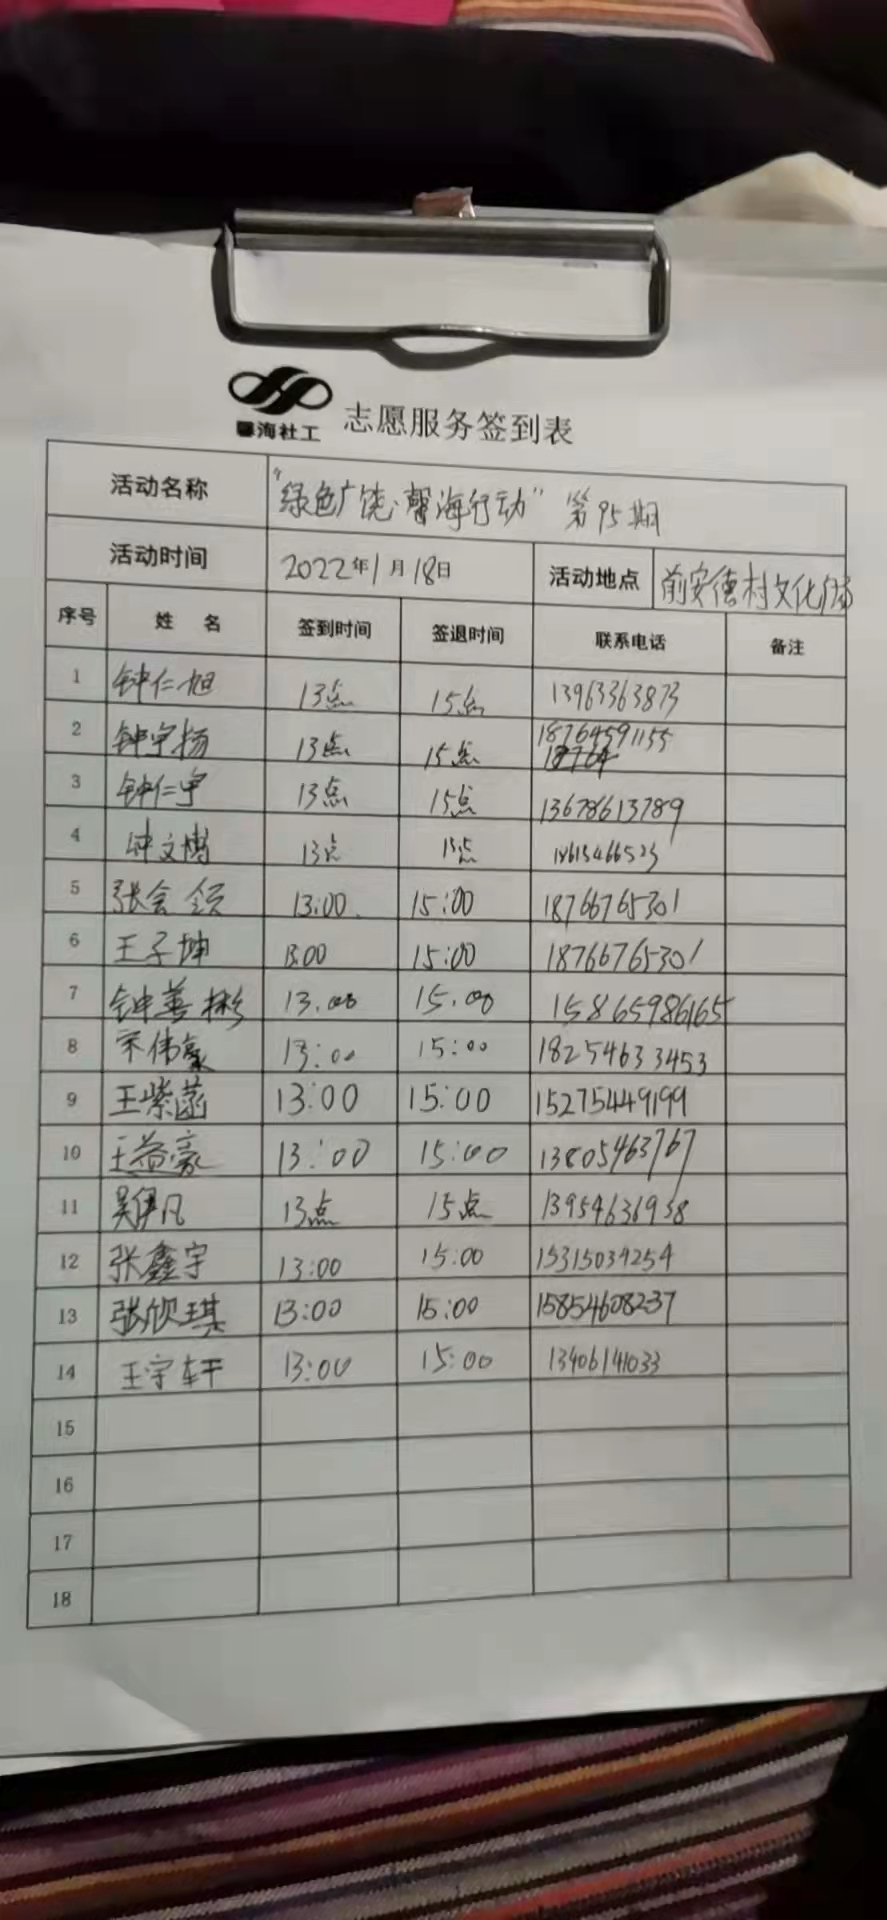 馨海社工 志愿服务签到表
活动名称 “绿色广饶·馨海行动” 第95期
活动时间 2022年1月18日 活动地点 前安德村文化广场
序号 姓 名 签到时间 签退时间 联系电话 备注
1 钟仁旭 13点 15点 13963363873
2 钟宇扬 13点 15点 18764591155
3 钟仁宇 13点 15点 13678613789
4 钟文博 13点 15点
5 张会领 13:00 15:00 18766765301
6 王子坤 13:00 15:00 18766765301
7 钟善彬 13:00 15:00 15865986165
8 宋伟豪 13:00 15:00 18254633453
9 王紫菡 13:00 15:00 15275449199
10 王益豪 13:00 15:00 13805463767
11 吴伊凡 13点 15点 13954636938
12 张鑫宇 13:00 15:00 15315039254
13 张欣琪 13:00 15:00 15854608237
14 王宇轩 13:00 15:00 13406141033
15
16
17
18